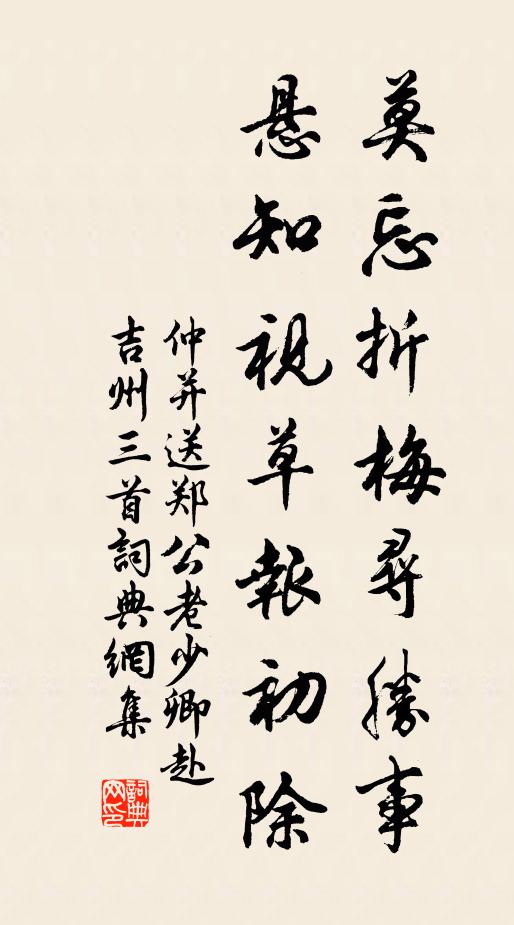 莫忘折梅尋勝事
悬知視草報初除
仲并送郑公老少卿赴
吉州三首詞典網集
詞典
网印